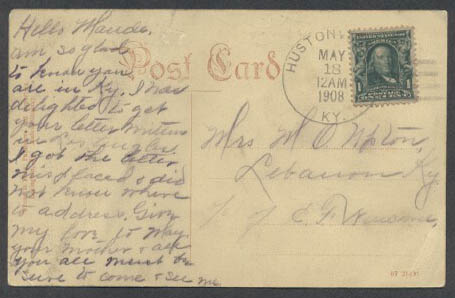 Hello Maude,
am so glad
to know you
are in Ky. I was
delighted to get
your letter written
in Los Angeles.
I got the letter
misplaced & did
not know where
to address. Give
my love to May
your Mother & all
you all must be
sure to come & see me
Post Card
HUSTONV
MAY
18
12AM
1908
KY.
1
Mrs M. O. Upton,
Lebanon, Ky
c/o E. F.